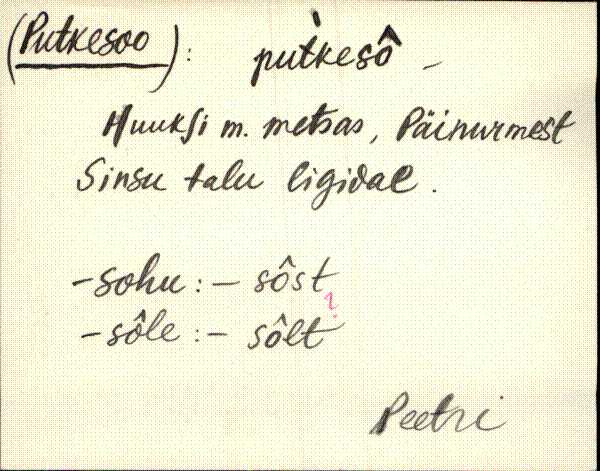 (Putkesoo): put̀kesô –
Huuksi m. metsas, Päinurmest
Sinsu talu ligidal.
-sohu: – sôst
?
-sôle: – sôlt
Peetri